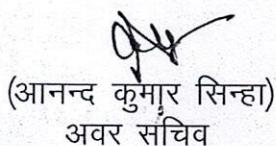 (आनन्द कुमार सिन्हा)
अवर सचिव